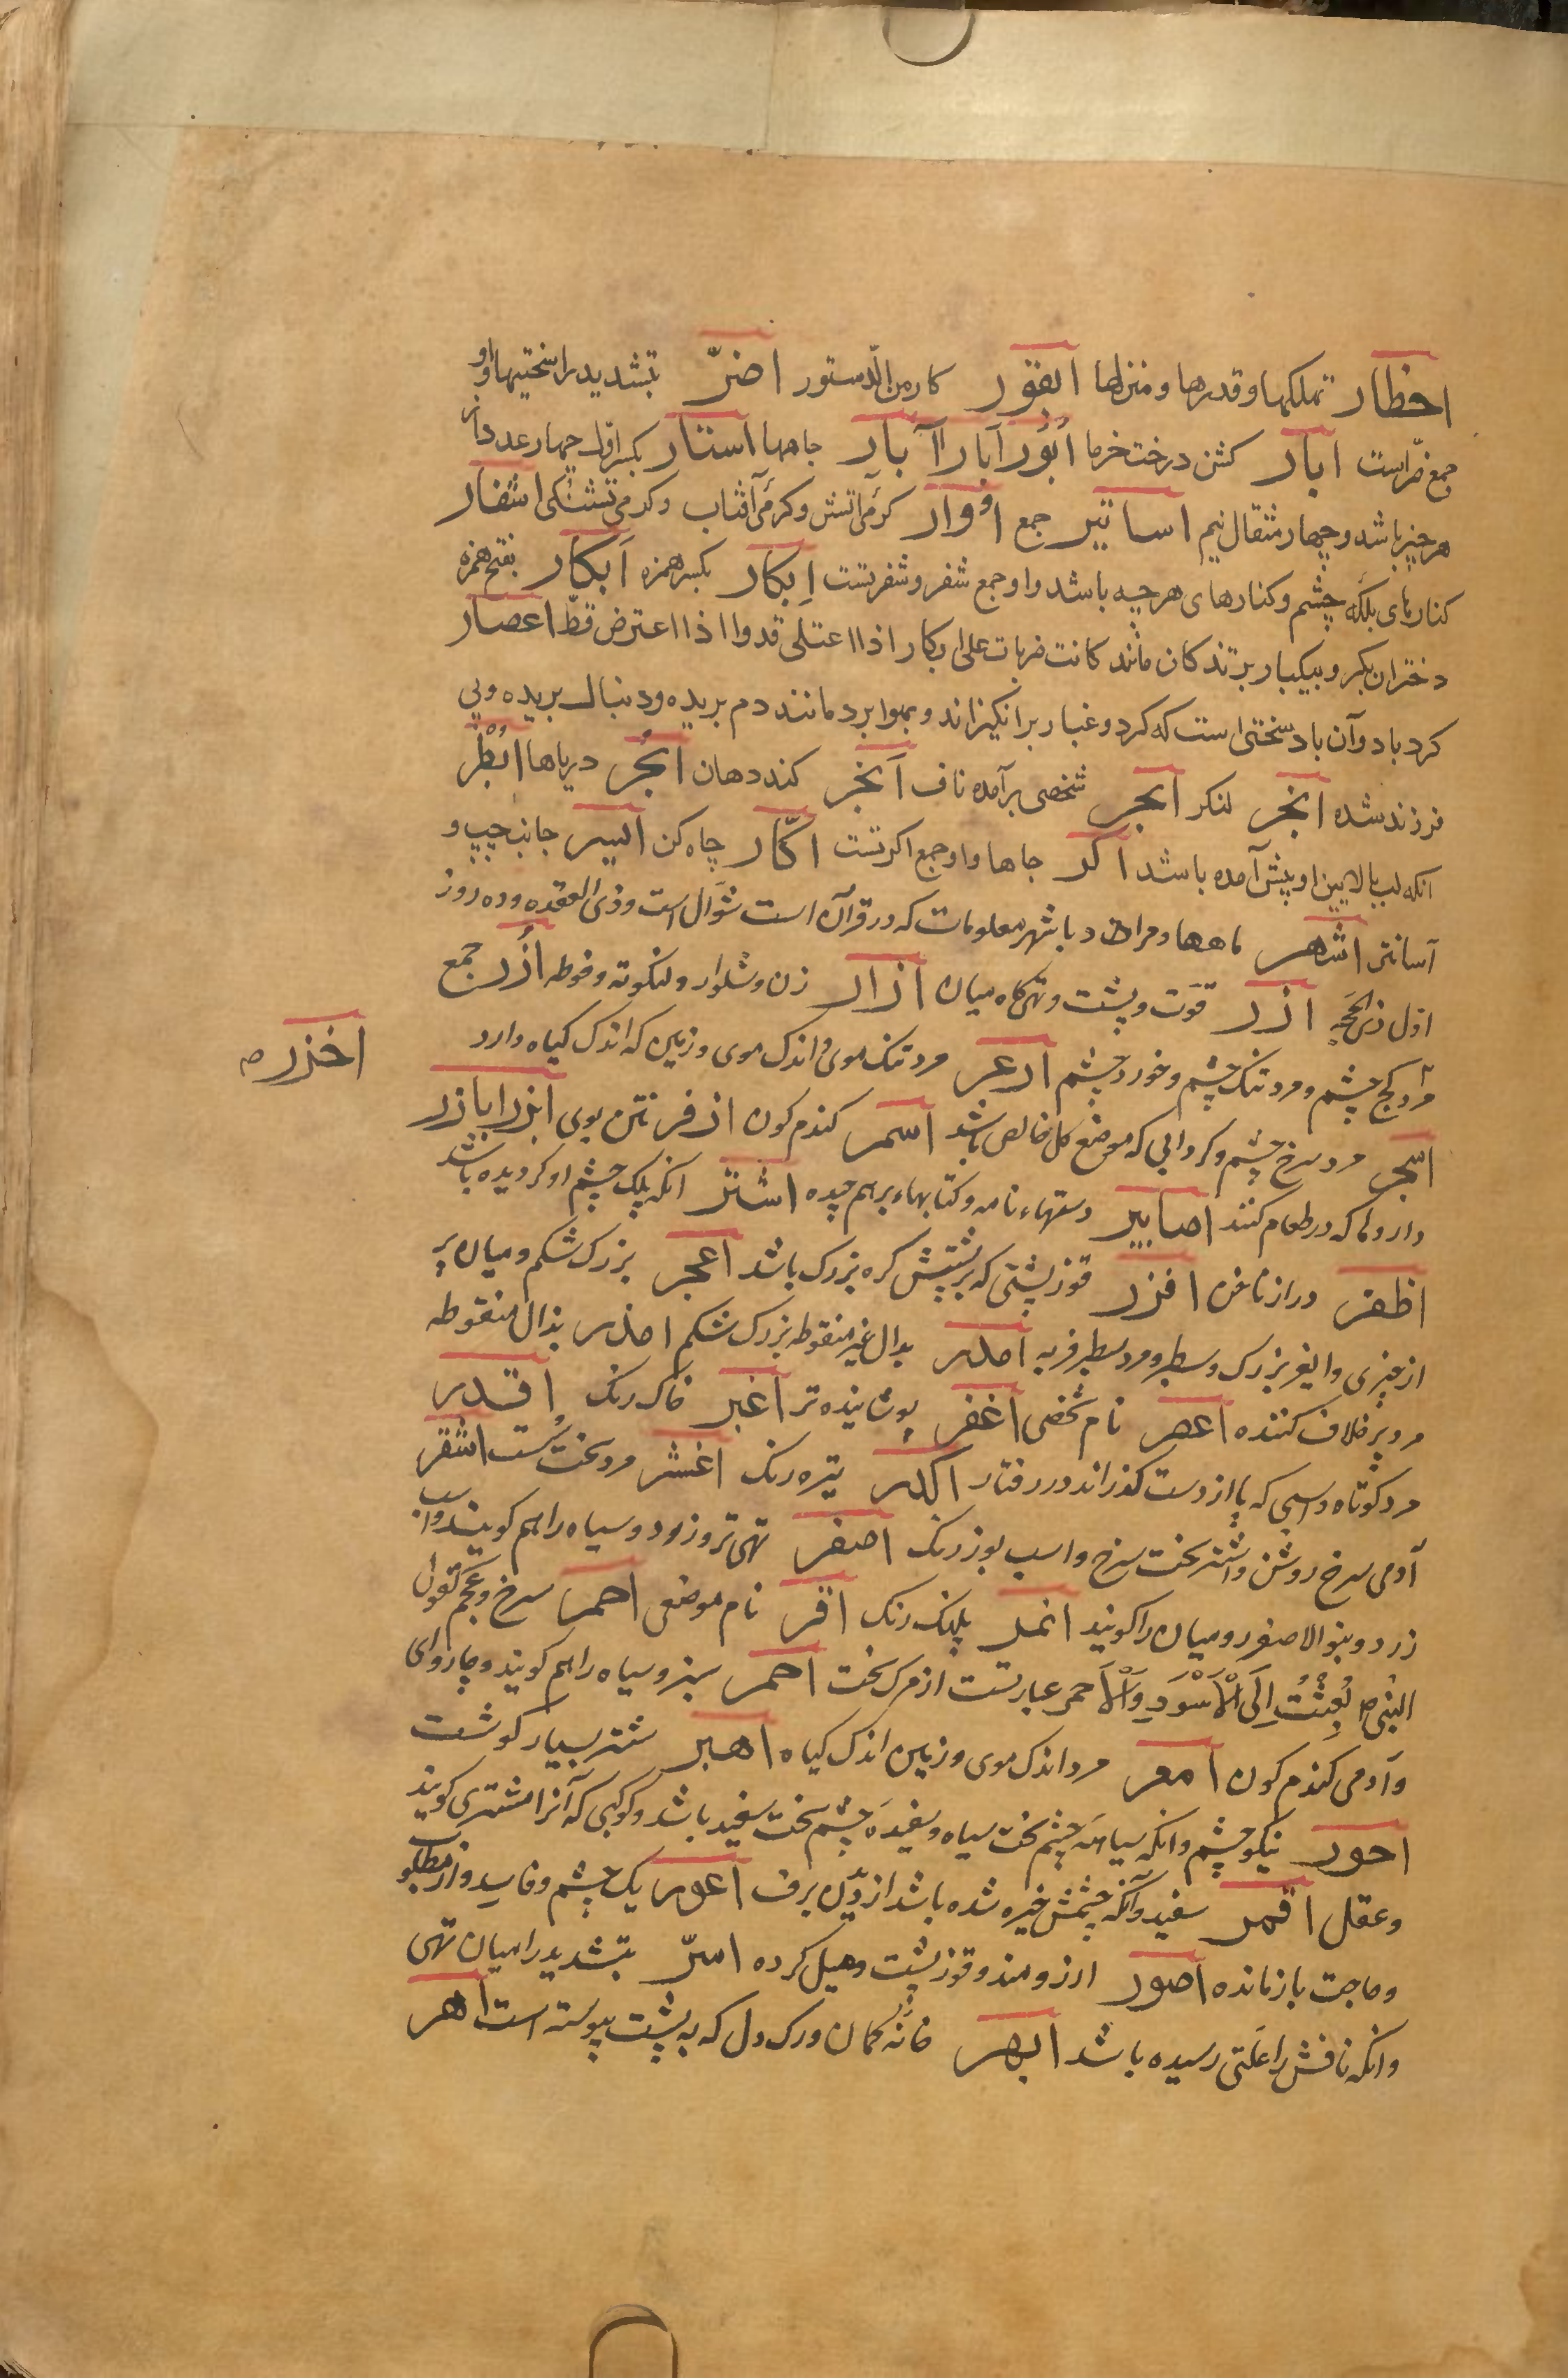 اخطار تهلکها و قدرها و منزلها ابقور کارمن الدستور اضرّ بتشدید را سختیها و او
جمع ضرّ است ابار کشن درخت خرما اَبْؤُر اَبار اآبار چاهها استار بکسر اول چهار عدد از
هر چیز باشد و چهار مثقال نیم اساتیر جمع اوار کرمی آتش و کرمی آفتاب و کرمی تشنکی اشفار
کنارهای پلکه چشم و کنارهای هر چیه باشد و او جمع شفر و شفرتست اِبکار بکسر همزه اَبکار بفتح همزه
دختران بکر و بیکبار برندکان مانند کانت ضربات علی ابکار اذا اعتلی قد و اذا اعترض قطّ اعصار
کردباد و آن باد سختی است که کرد و غبار برانکیزاند و بهوا برد مانند دم بریده و دنبال بریده و بی
فرزند شده انجر لنکر ابجر شخصی برآمده ناف اَبخر کنده دهان ابحُر دریاها ابظر
انکه لب بالایین او پیش آمده باشد اکر چاها و او جمع اکرتست اکّار چاه کن ایسر جانب چپ و
آسانتر اشهر ماهها و مراد باشهر معلومات که در قرآن است شوّال است و ذی القعده و ده روز
اول ذی الحجه ازر قوّت و پشت و تهی کاه میان ازار زن و شلوار و لنکوته و فوطه اُزُر جمع
مرد کج چشم و مرد تنک چشم و خورد چشم ازعر مرد تنک موی و اندک موی و زمین که اندک کیاه دارد
اخزر ص
اسجر مرد سرخ چشم و کردابی که موضع کل خالص باشد اسمر کندم کون اذفر نتن بوی ابزر ابازر
داروها که در طعام کنند اضابیر دستهاء نامه و کتابهاء برهم چیده اشتر انکه پلک چشم او کردیده باشد
اظفر دراز ناخن افزر قوز پشتی که بر پشتش کره بزرک باشد اعجر بزرک شکم و میان پر
از چیزی و ایغر بزرک و سطبر و مرد سطبر فربه امدر بدال غیر منقوطه بزرک شکم امذر بذال منقوطه
مرد پر خلاف کننده اعصر نام شخصی اغفر پوشاننده تر اغبر خاک رنک اقدر
مرد کوتاه و اسبی که پا از دست کذراند در رفتار اکدر تیره رنک اغثر مرد سخت سست اشقر
آدمی سرخ روشن و اشتر سخت سرخ و اسب بوز رنک اصفر تهی تر و زرد و سیاه را هم کویند و اسب
زرد و بنوالاصفر رومیان را کویند انمر پلنک رنک اقر نام موضعی احمر سرخ و عجم لقول
النبی ص بُعِثْتُ اِلَی الْاَسْوَدِ وَ الْاَحمر عبارتست از مرک سخت احمر سبز و سیاه را هم کویند و چاروای
و آدمی کندم کون امعر مرد اندک موی و زمین اندک کیاه اهبر شتر بسیار کوشت
احور نیکو چشم و انکه سیاهه چشم سخت سیاه و سفیده چشم سخت سفید باشد و کوکبی که آنرا مشتری کویند
و عقل اقمر سفید و آنکه چشمش خیره شده باشد از دیدن برف اعور یک چشم و فاسد و از مطلب
و حاجت باز مانده اصور ارزومند و قوز پشت و میل کرده اسرّ بتشدید را میان تهی
و انکه نافش را علتی رسیده باشد ابهر خانه کمان و رک دل که به پشت پیوسته است اهر